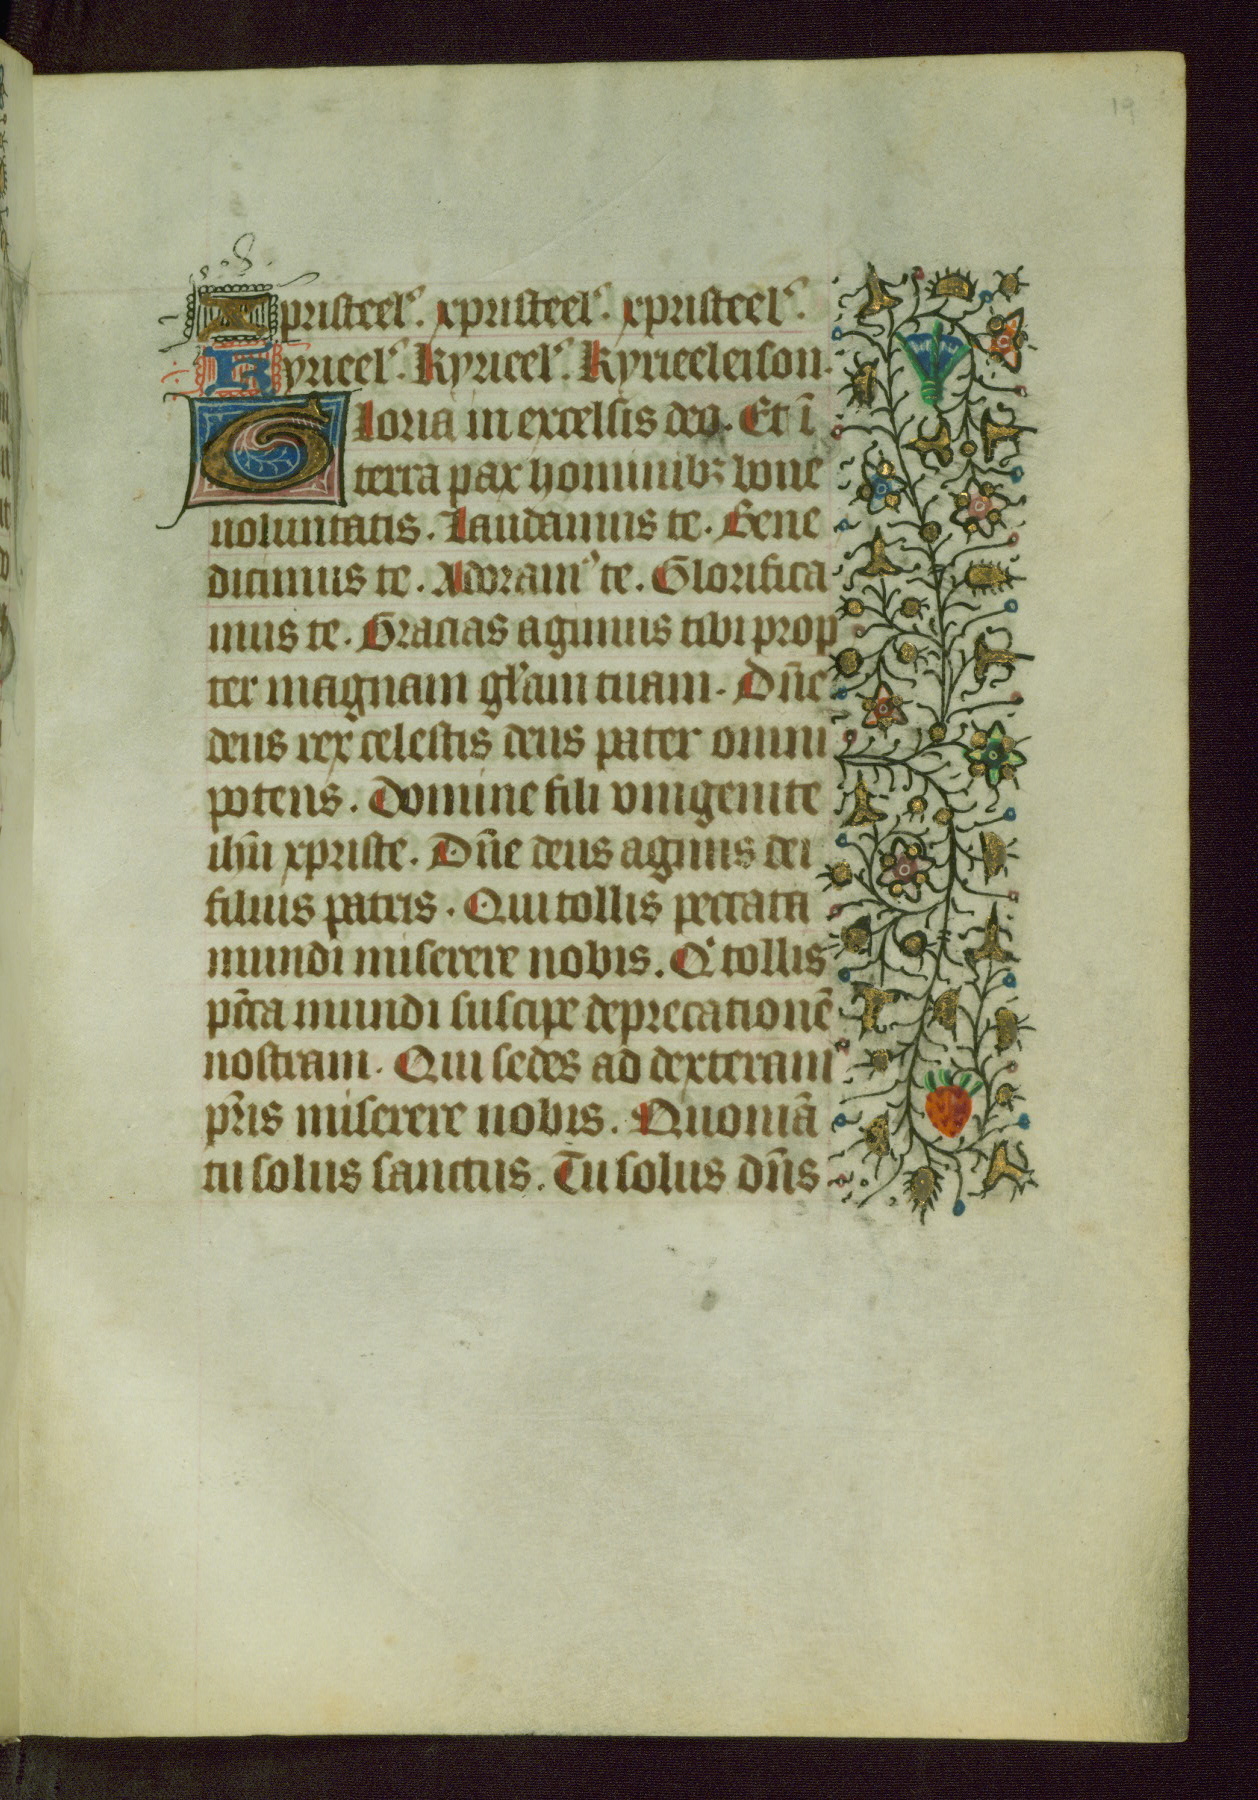 19
Xpristeel'. xpristeel'. xpristeel'.
Kyrieel'. Kyrieel'. Kyrieeleison.
Gloria in excelsis deo. Et ī
terra pax hominibꝫ bone
voluntatis. Laudamus te. Bene
dicimus te. Adoram' te. Glorifica
mus te. Gracias agimus tibi prop
ter magnam gl'am tuam. Dn̄e
deus rex celestis deus pater omni
potens. Domine fili vnigenite
ihū xpriste. Dn̄e deus agnus dei
filius patris. Qui tollis peccata
mundi miserere nobis. Qⁱ tollis
pc̄ta mundi suscipe deprecationē
nostram. Qui sedes ad dexteram
pr̄is miserere nobis. Quoniā
tu solus sanctus. Tu solus dn̄s